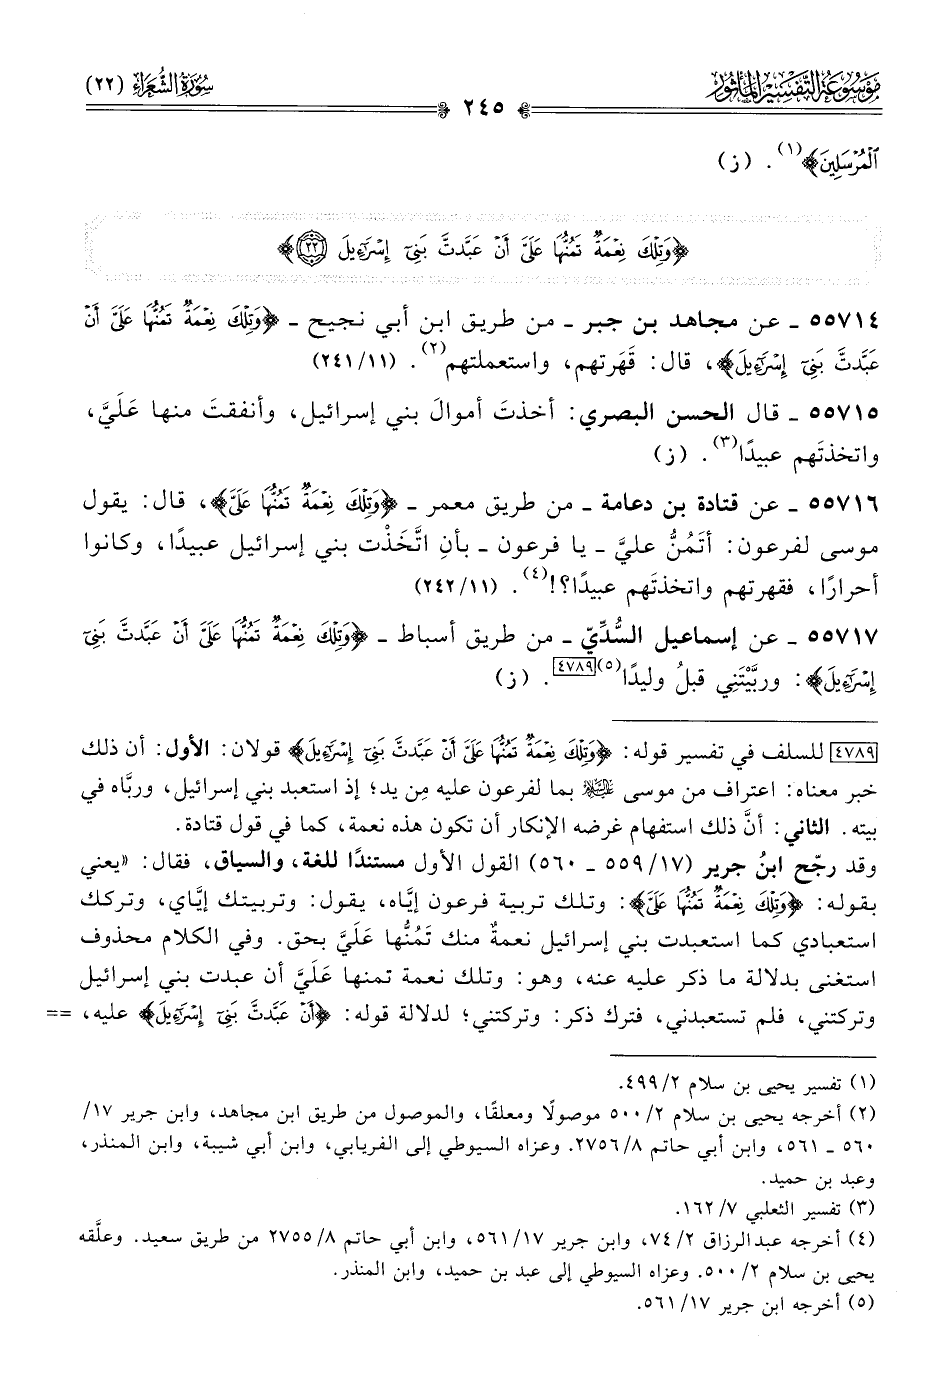 مَوْسُوعَةُ التَّفْسِيرِ المَأْثُورِ
سُورَةُ الشُّعَرَاءِ (٢٢)
٢٤٥
ٱلْمُرْسَلِينَ﴾(١). (ز)
﴿وَتِلْكَ نِعْمَةٌ تَمُنُّهَا عَلَىَّ أَنْ عَبَّدتَّ بَنِىٓ إِسْرَٰٓءِيلَ ٢٢﴾
٥٥٧١٤ ـ عن مجاهد بن جبر ـ من طريق ابن أبي نجيح ـ ﴿وَتِلْكَ نِعْمَةٌ تَمُنُّهَا عَلَىَّ أَنْ
عَبَّدتَّ بَنِىٓ إِسْرَٰٓءِيلَ﴾، قال: قَهَرتهم، واستعملتهم(٢). (١١/٢٤١)
٥٥٧١٥ ـ قال الحسن البصري: أخذتَ أموالَ بني إسرائيل، وأنفقتَ منها عَلَيَّ،
واتخذتَهم عبيدًا(٣). (ز)
٥٥٧١٦ ـ عن قتادة بن دعامة ـ من طريق معمر ـ ﴿وَتِلْكَ نِعْمَةٌ تَمُنُّهَا عَلَىَّ﴾، قال: يقول
موسى لفرعون: أتَمُنُّ عليَّ ـ يا فرعون ـ بأنِ اتَّخَذْت بني إسرائيل عبيدًا، وكانوا
أحرارًا، فقهرتهم واتخذتَهم عبيدًا؟!(٤). (١١/٢٤٢)
٥٥٧١٧ ـ عن إسماعيل السُّدِّيّ ـ من طريق أسباط ـ ﴿وَتِلْكَ نِعْمَةٌ تَمُنُّهَا عَلَىَّ أَنْ عَبَّدتَّ بَنِىٓ
إِسْرَٰٓءِيلَ﴾: وربَّيْتَنِي قبلُ وليدًا(٥)[٤٧٨٩]. (ز)
[٤٧٨٩] للسلف في تفسير قوله: ﴿وَتِلْكَ نِعْمَةٌ تَمُنُّهَا عَلَىَّ أَنْ عَبَّدتَّ بَنِىٓ إِسْرَٰٓءِيلَ﴾ قولان: الأول: أن ذلك
خبر معناه: اعتراف من موسى عليه السلام بما لفرعون عليه مِن يد؛ إذ استعبد بني إسرائيل، وربَّاه في
بيته. الثاني: أنَّ ذلك استفهام غرضه الإنكار أن تكون هذه نعمة، كما في قول قتادة.
وقد رجّح ابنُ جرير (١٧/٥٥٩ ـ ٥٦٠) القول الأول مستندًا للغة، والسياق، فقال: «يعني
بقوله: ﴿وَتِلْكَ نِعْمَةٌ تَمُنُّهَا عَلَىَّ﴾: وتلك تربية فرعون إيَّاه، يقول: وتربيتك إيَّاي، وتركك
استعبادي كما استعبدت بني إسرائيل نعمةٌ منك تَمُنُّها عَلَيَّ بحق. وفي الكلام محذوف
استغنى بدلالة ما ذكر عليه عنه، وهو: وتلك نعمة تمنها عَلَيَّ أن عبدت بني إسرائيل
وتركتني، فلم تستعبدني، فترك ذكر: وتركتني؛ لدلالة قوله: ﴿أَنْ عَبَّدتَّ بَنِىٓ إِسْرَٰٓءِيلَ﴾ عليه، ==
(١) تفسير يحيى بن سلام ٢/٤٩٩.
(٢) أخرجه يحيى بن سلام ٢/٥٠٠ موصولًا ومعلقًا، والموصول من طريق ابن مجاهد، وابن جرير ١٧/
٥٦٠ ـ ٥٦١، وابن أبي حاتم ٨/٢٧٥٦. وعزاه السيوطي إلى الفريابي، وابن أبي شيبة، وابن المنذر،
وعبد بن حميد.
(٣) تفسير الثعلبي ٧/١٦٢.
(٤) أخرجه عبدالرزاق ٢/٧٤، وابن جرير ١٧/٥٦١، وابن أبي حاتم ٨/٢٧٥٥ من طريق سعيد. وعلَّقه
يحيى بن سلام ٢/٥٠٠. وعزاه السيوطي إلى عبد بن حميد، وابن المنذر.
(٥) أخرجه ابن جرير ١٧/٥٦١.